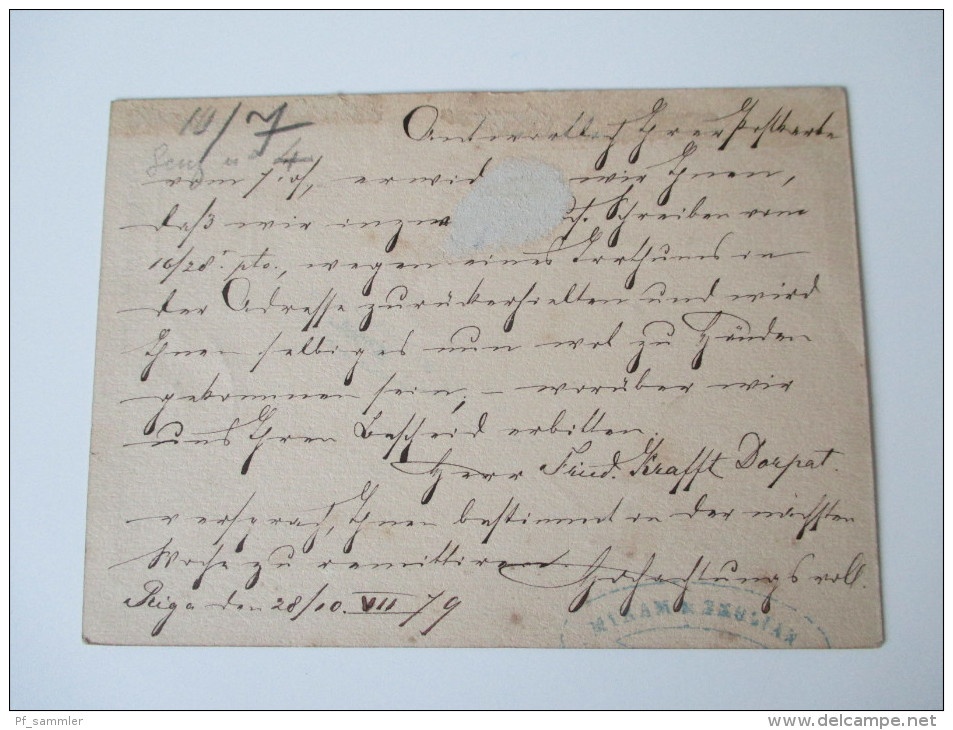 10/7
Antwortlich Ihrer Postkarte
vom 7. d/, erwid wir Ihnen,
daß wir inzw Schreiben vom
16/28. pto., wegen eines Irrthums in
der Adresse zurückerhielten und wird
Ihnen selbiges nun wol zu Händen
gekommen sein, – worüber wir
uns Ihren Bescheid erbitten.
Herr Fried. Krafft Dorpat.
versprach, Ihnen bestimmt in der nächsten
Woche zu remittiren.
Hochachtungsvoll.
Riga den 28/10. VII 79
Pf_sammler
www.delcampe.net